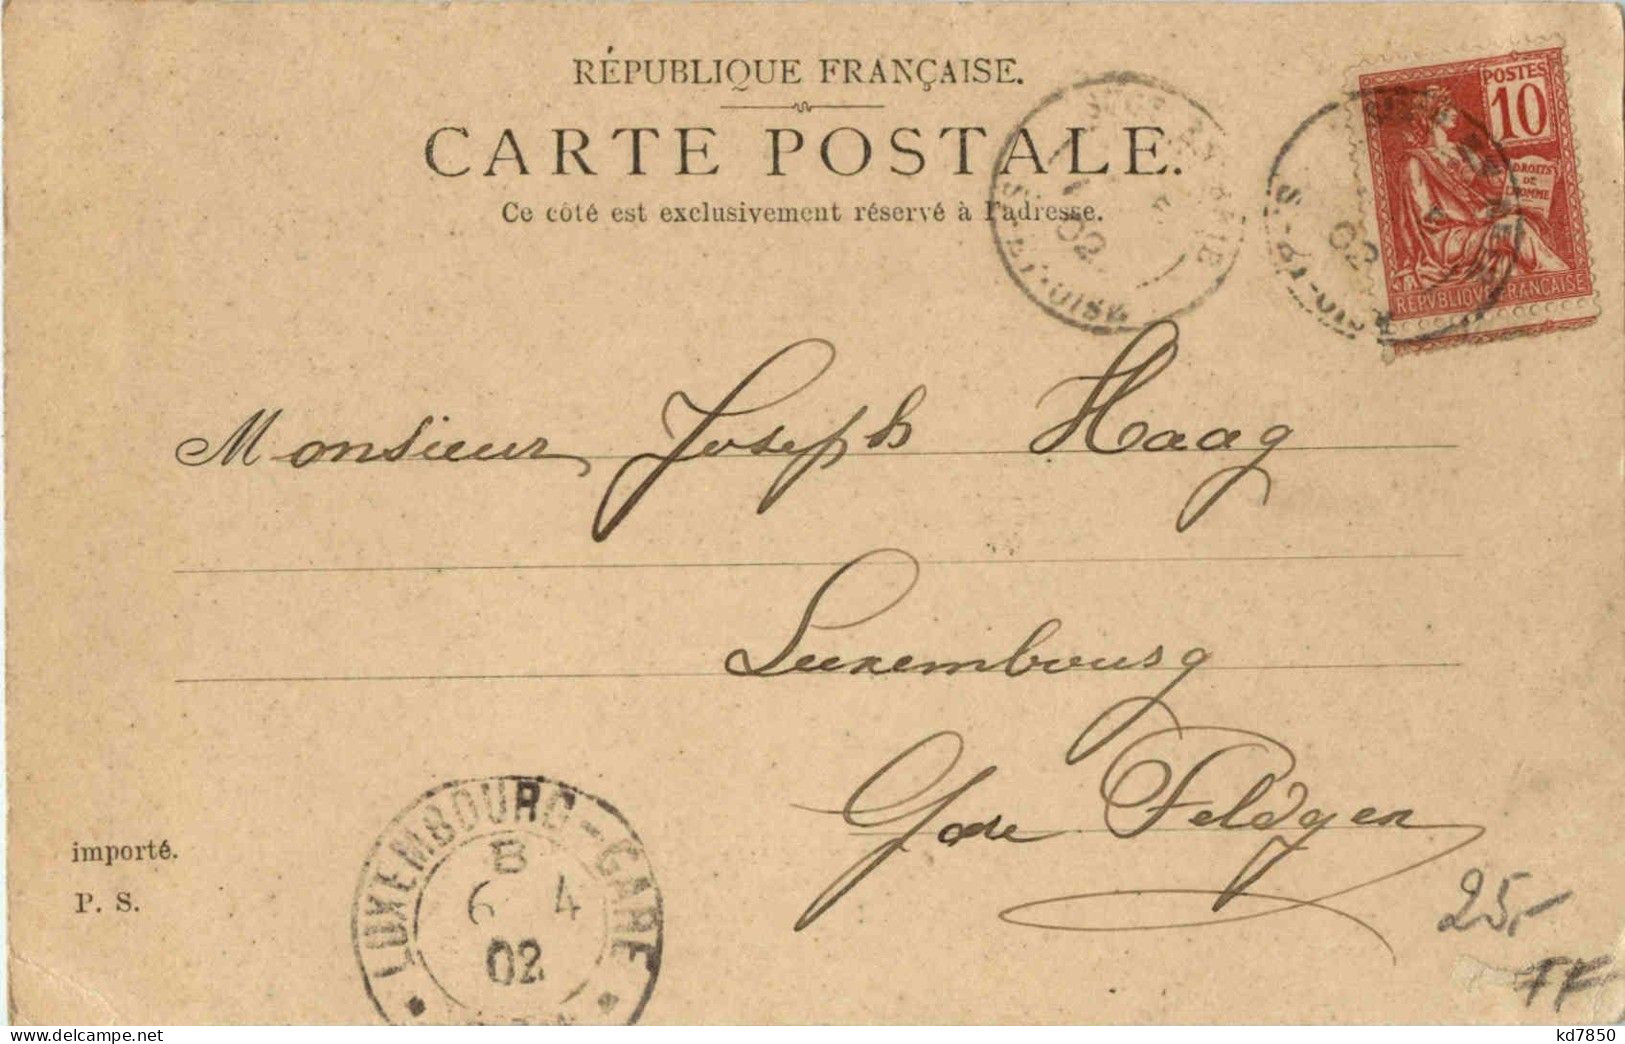 RÉPUBLIQUE FRANÇAISE.
CARTE POSTALE.
Ce côté est exclusivement réservé à l'adresse.
POSTES
10
DROITS
DE
L'HOMME
REPVBLIQVE FRANÇAISE
02
02
Monsieur Joseph Haag
Luxembourg
Gare Feldgen
importé.
P. S.
LUXEMBOURG-GARE
B
6 4
02
25,-
TF
kd7850